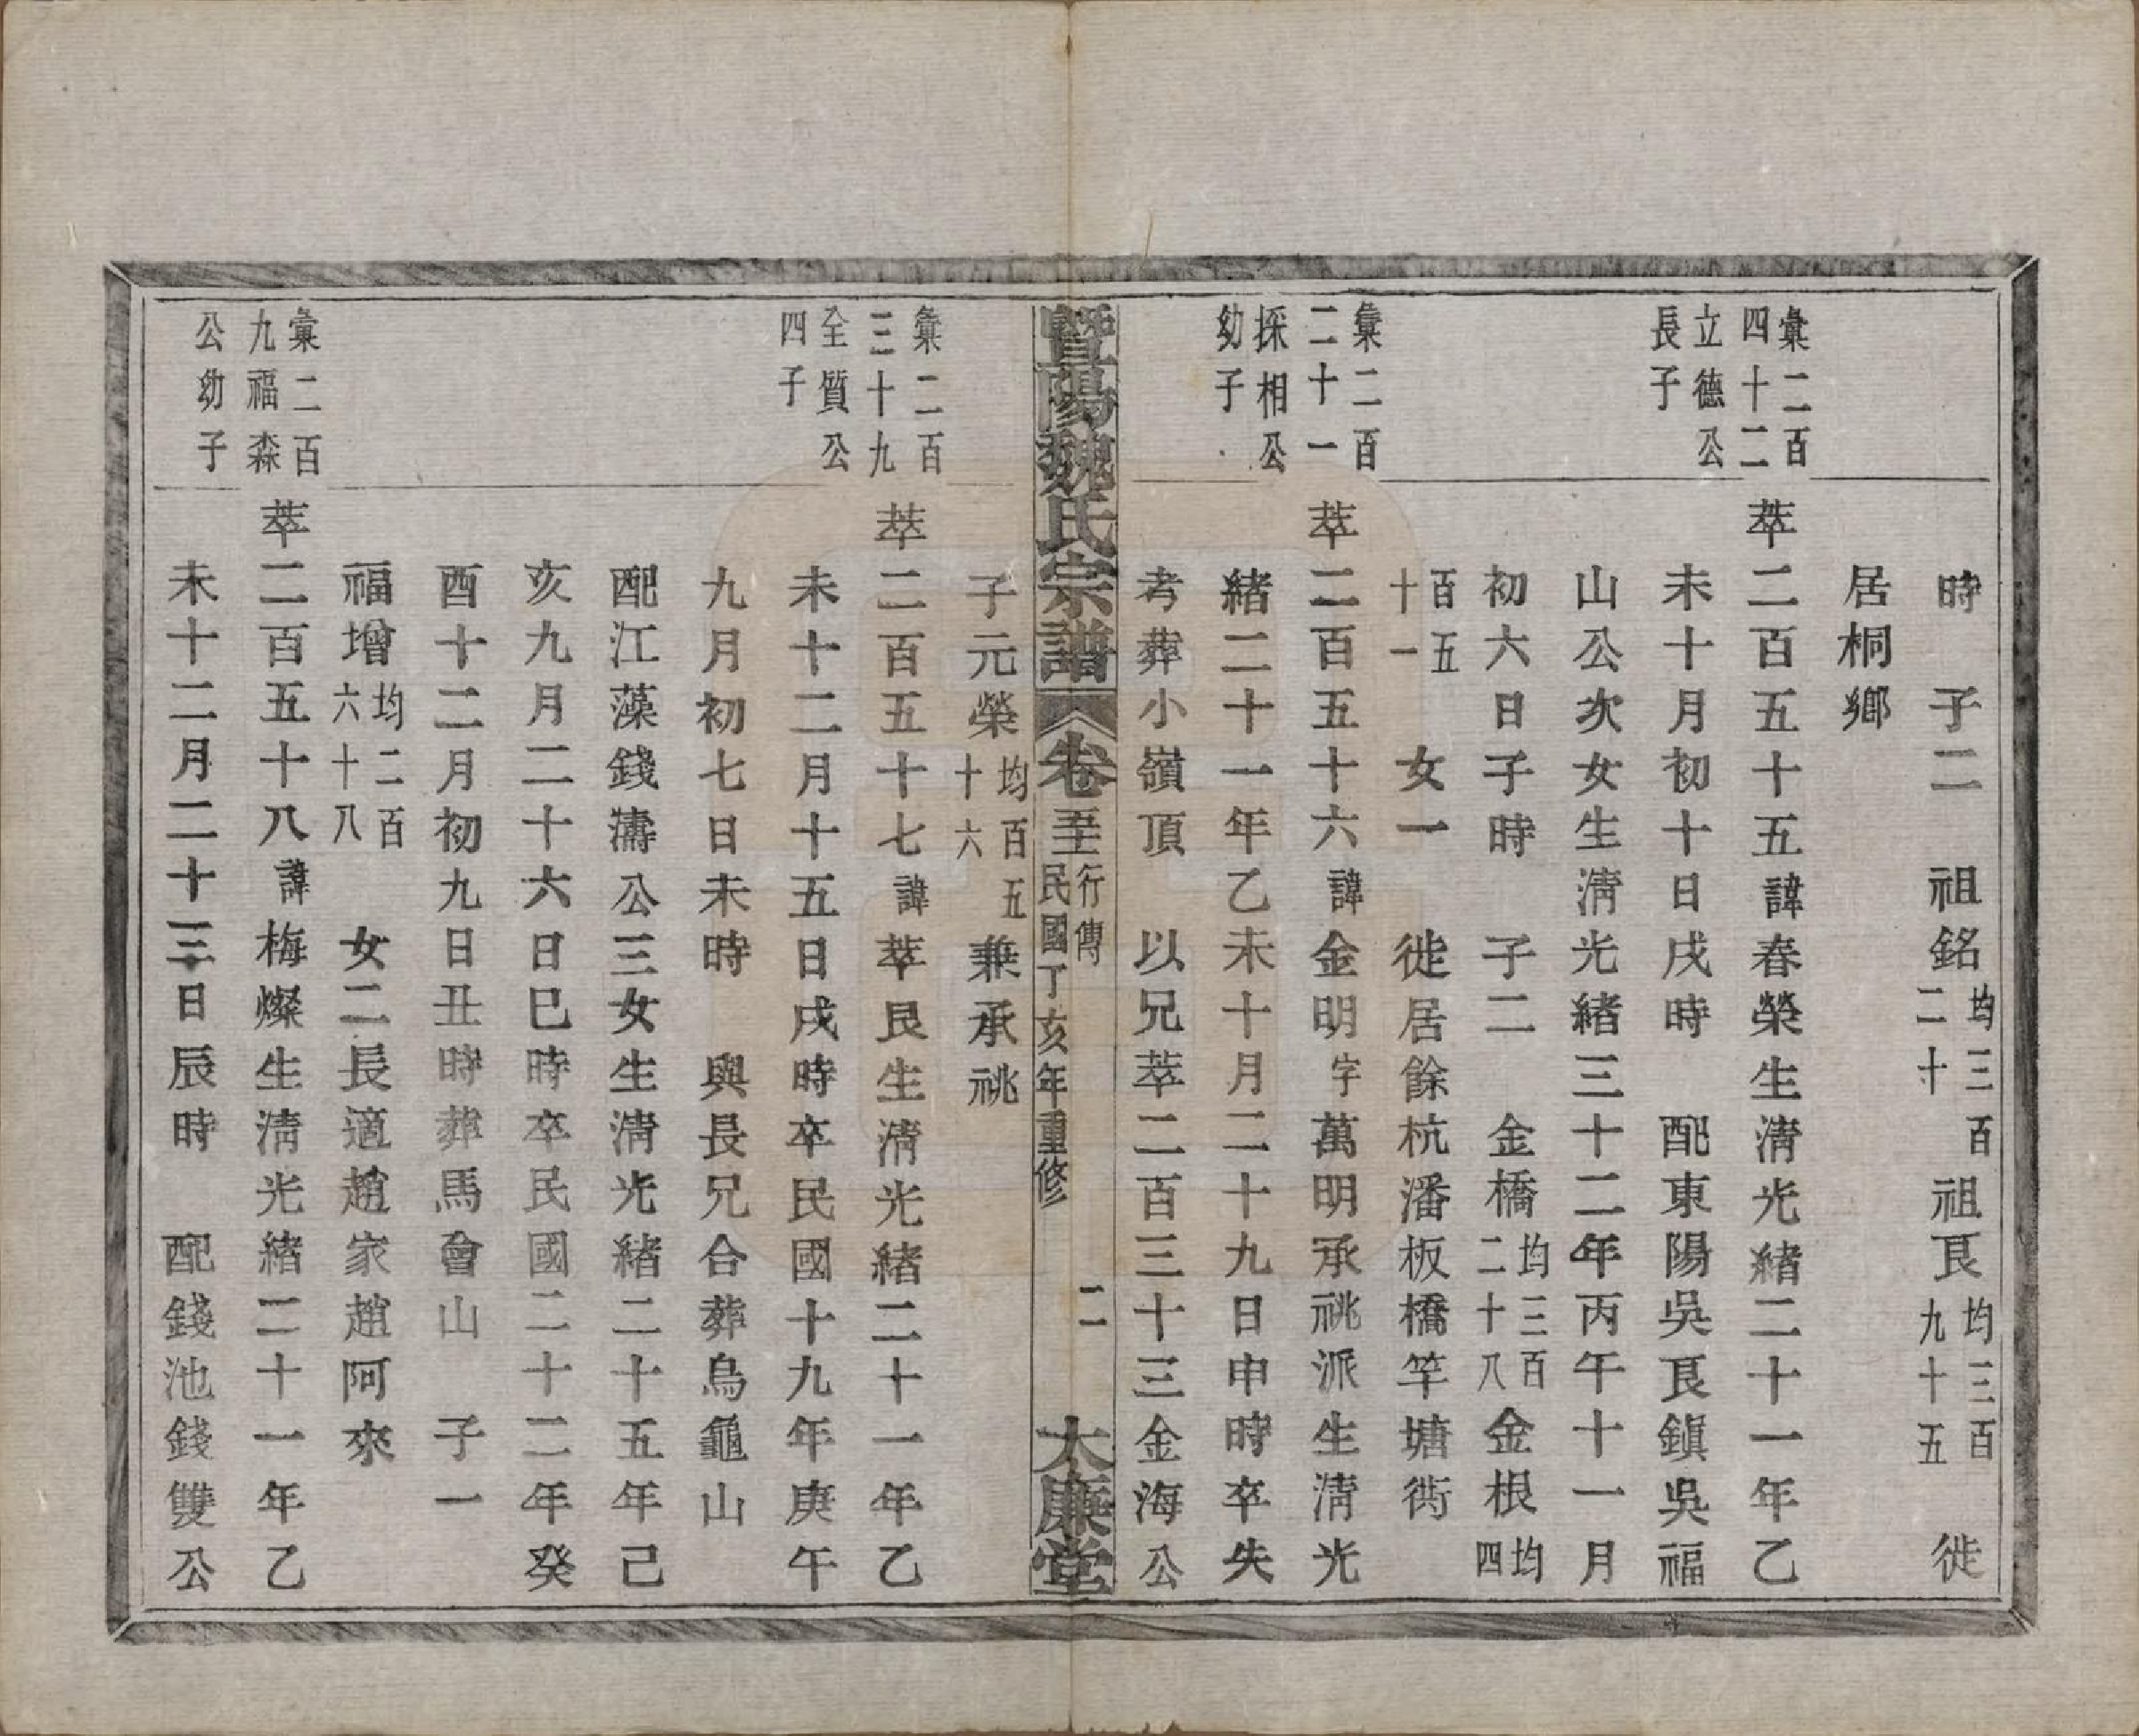 時　子二　祖銘均三百二十　祖艮均三百九十五　徙
居桐鄉
彙二百四十二立德公長子
萃二百五十五諱春榮生淸光緒二十一年乙
未十月初十日戌時　配東陽吳艮鎭吳福
山公次女生淸光緒三十二年丙午十一月
初六日子時　子二　金橋均三百二十八金根均四
百五十一　女一　徙居餘杭潘板橋竿塘衖
彙二百二十一採相公幼子
萃二百五十六諱金明字萬明承祧派生淸光
緒二十一年乙未十月二十九日申時卒失
考葬小嶺頂　以兄萃二百三十三金海公
暨陽魏氏宗譜　卷　行傳　民國丁亥年重修　二　大廉堂
子元榮均百五十六　兼承祧
彙二百三十九全質公四子
萃二百五十七諱萃艮生淸光緒二十一年乙
未十二月十五日戌時卒民國十九年庚午
九月初七日未時　與長兄合葬烏龜山
配江藻錢濤公三女生淸光緒二十五年己
亥九月二十六日巳時卒民國二十二年癸
酉十二月初九日丑時葬馬會山　子一
福增均二百六十八　女二長適趙家趙阿來
彙二百九福森公幼子
萃二百五十八諱梅燦生淸光緒二十一年乙
未十二月二十三日辰時　配錢池錢雙公